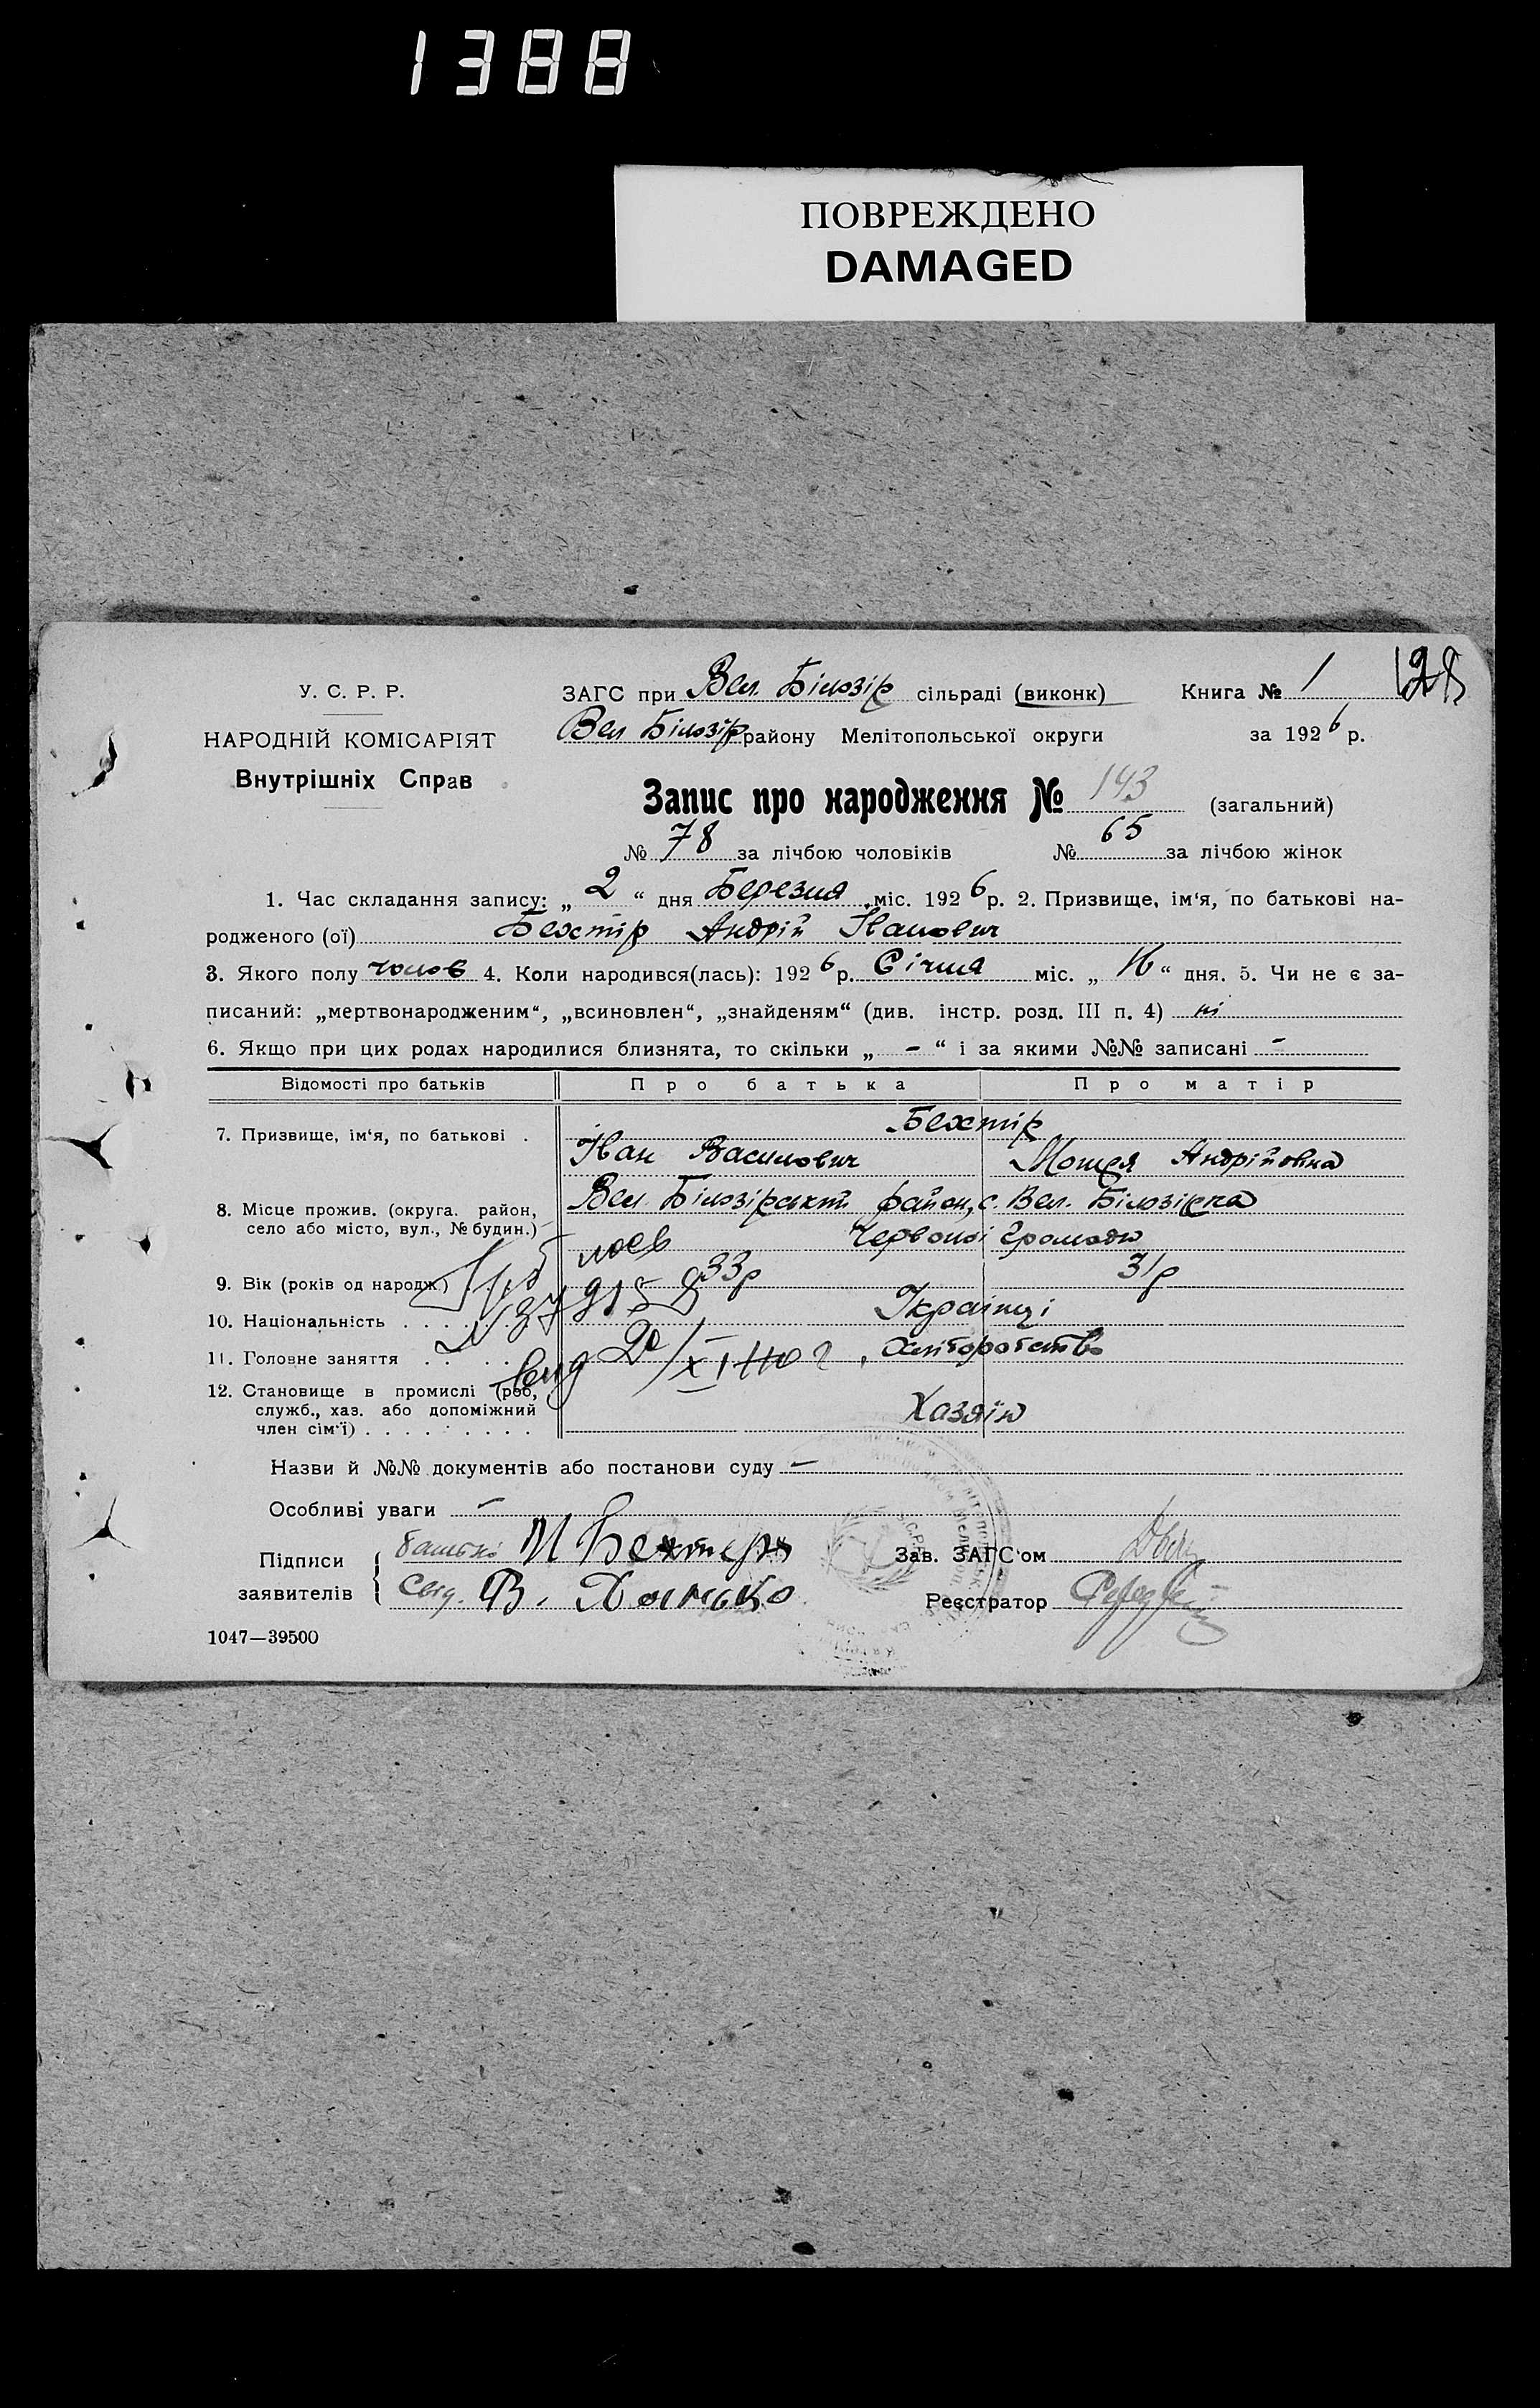 1388
ПОВРЕЖДЕНО
DAMAGED
У. С. Р. Р.
НАРОДНІЙ КОМІСАРІЯТ
Внутрішніх Справ
ЗАГС при Вел. Білозір сільраді (виконк) Книга № 1 128
Вел Білозір району Мелітопольської округи за 1926 р.
Запис про народження № 143 (загальний)
№ 78 за лічбою чоловіків № 65 за лічбою жінок
1. Час складання запису: „ 2 “ дня Березня міс. 1926 р. 2. Призвище, ім‘я, по батькові на-
родженого (ої) Бехтір Андрій Іванович
3. Якого полу чолов 4. Коли народився(лась): 1926 р. Січня міс. „ “ дня. 5. Чи не є за-
писаний: „мертвонародженим“, „всиновлен“, „знайденям“ (див. інстр. розд. III п. 4) ні
6. Якщо при цих родах народилися близнята, то скільки „ - “ і за якими №№ записані -
Відомості про батьків Про батька Про матір
7. Призвище, ім‘я, по батькові . Бехтір
Іван Василович Мотря Андрійовна
8. Місце прожив. (округа. район, село або місто, вул., № будин.) Вел. Білозірський район, с. Вел. Білозірка
Червоної Громади
9. Вік (років од народж.) 33р 31р
10. Національність . . . . . . Українці
11. Головне заняття . . . . Хліборобство
12. Становище в промислі (роб, служб., хаз. або допоміжний член сім‘ї) . . . . . . . . . Хазяїн
Назви й №№ документів або постанови суду —
Особливі уваги —
Підписи заявителів { батько И Бехтерь
Свид. В.
Зав. ЗАГС‘ом
Реєстратор
1047—39500